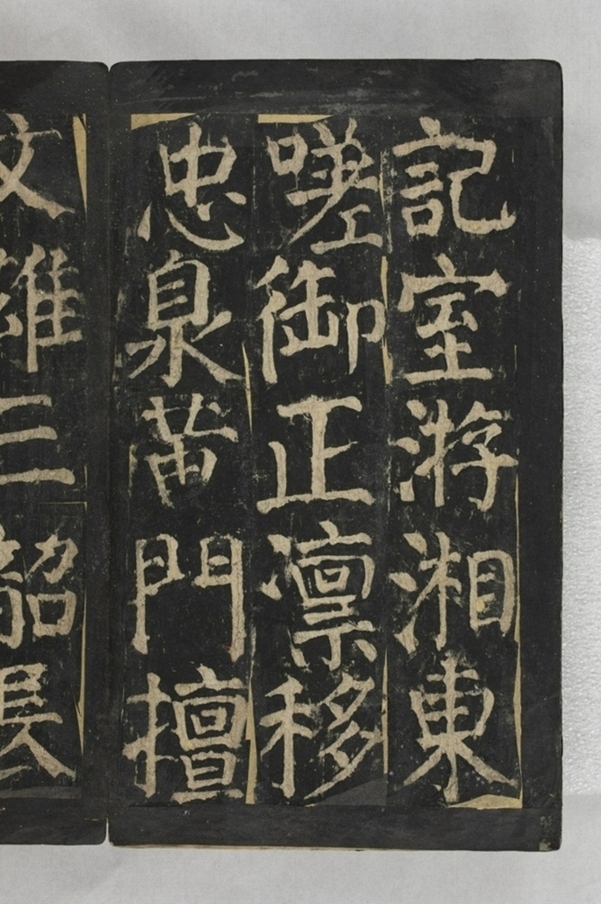 記室游湘東
嗟御正凛移
忠泉苗門擅
文雄三韶長